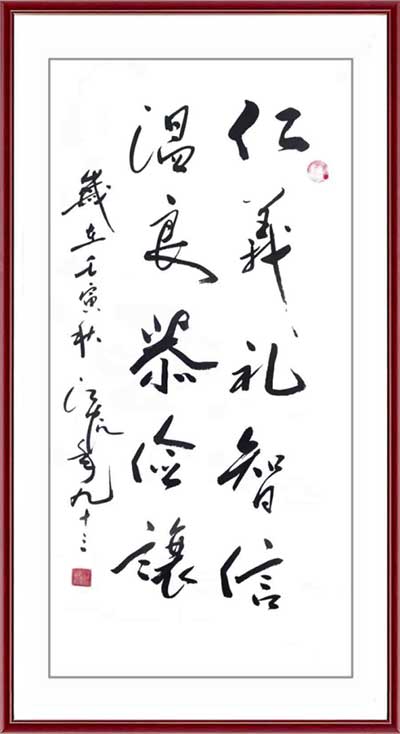 仁義礼智信
温良恭儉讓
歲在壬寅秋 江 年九十三